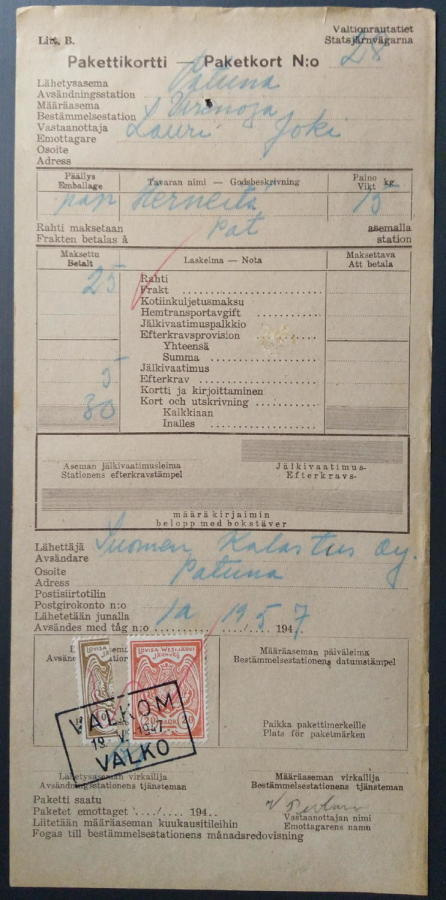 Litt. B.
Valtionrautatiet
Statsjärnvägarna
Pakettikortti — Paketkort N:o 28
Lähetysasema
Avsändningsstation
Patuna
Määräasema
Bestämmelsestation
Vastaanottaja Lauri Joki
Emottagare
Osoite
Address
Päällys
Emballage
Tavaran nimi — Godsbeskrivning
Paino
Vikt kg.
pap Herneitä 15
Rahti maksetaan
Frakten betalas å
Pat
asemalla
station
Maksettu
Betalt
Laskelma — Nota
Maksettava
Att betala
25
Rahti
Frakt
Kotiinkuljetusmaksu
Hemtransportavgift
Jälkivaatimuspalkkio
Efterkravsprovision
Yhteensä
Summa
Jälkivaatimus
5
Efterkrav
Kortti ja kirjoittaminen
30
Kort och utskrivning
Kaikkiaan
Inalles
Aseman jälkivaatimusleima
Stationens efterkravstämpel
Jälkivaatimus-
Efterkravs-
määrä kirjaimin
belopp med bokstäver
Lähettäjä Suomen Kalastus Oy.
Avsändare
Osoite
Address
Patuna
Postisiirtotilin
Postgirokonto n:o
Lähetetään junalla
Avsändes med tåg n:o 1a 19 5 1947
Määräaseman päiväleima
Bestämmelsestationens datumstämpel
LOVISA WESIJÄRVI
JÄRNVÄG
20
20
VALKOM
19. V. 1947
VALKO
Paikka pakettimerkeille
Plats för paketmärken
Lähetysaseman virkailija
Avsändningsstationens tjänsteman
Määräaseman virkailija
Bestämmelsestationens tjänsteman
Paketti saatu
Paketet emottaget ..../.... 194..
Vastaanottajan nimi
Emottagarens namn
Liitetään määräaseman kuukausitileihin
Fogas till bestämmelsestationens månadsredovisning